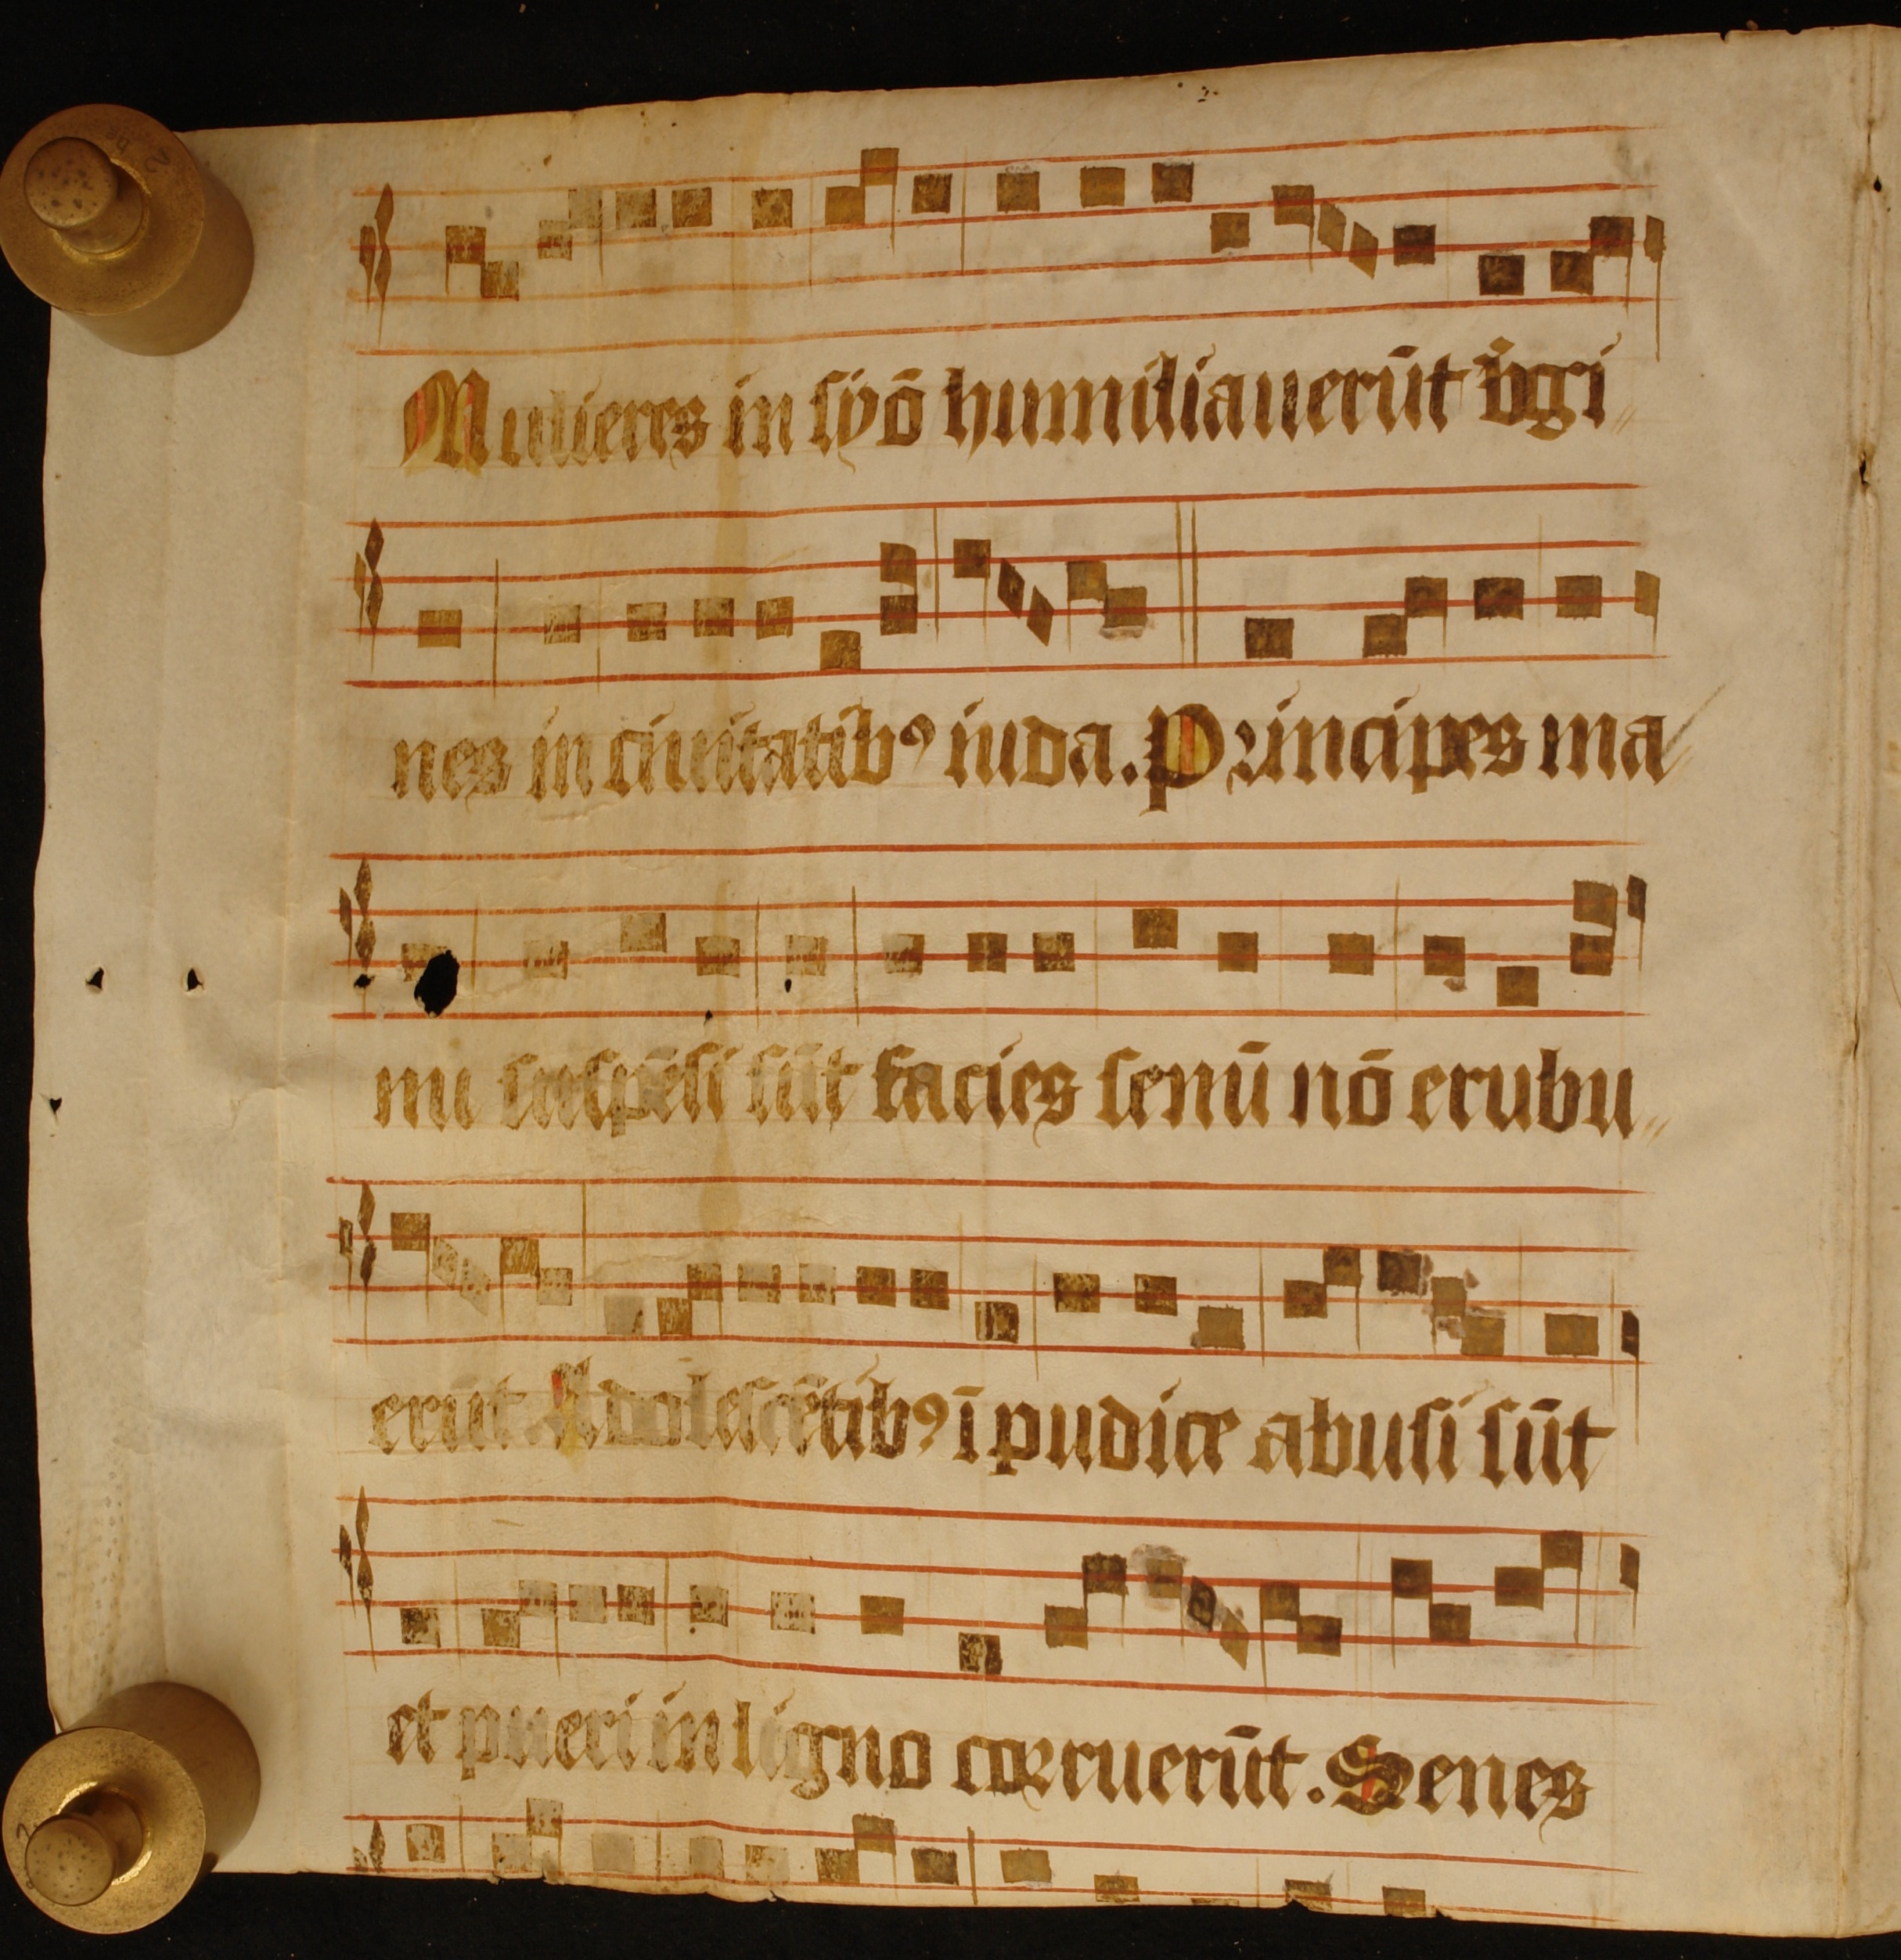 Mulieres in syō humiliauerūt v̓gi
nes in ciuitatibꝰ iuda. Principes ma
nu suspēsi sūt facies senū nō erubu
erūt. Adolescētibꝰ ī pudice abusi sūt
et pueri in ligno corruerūt. Senes